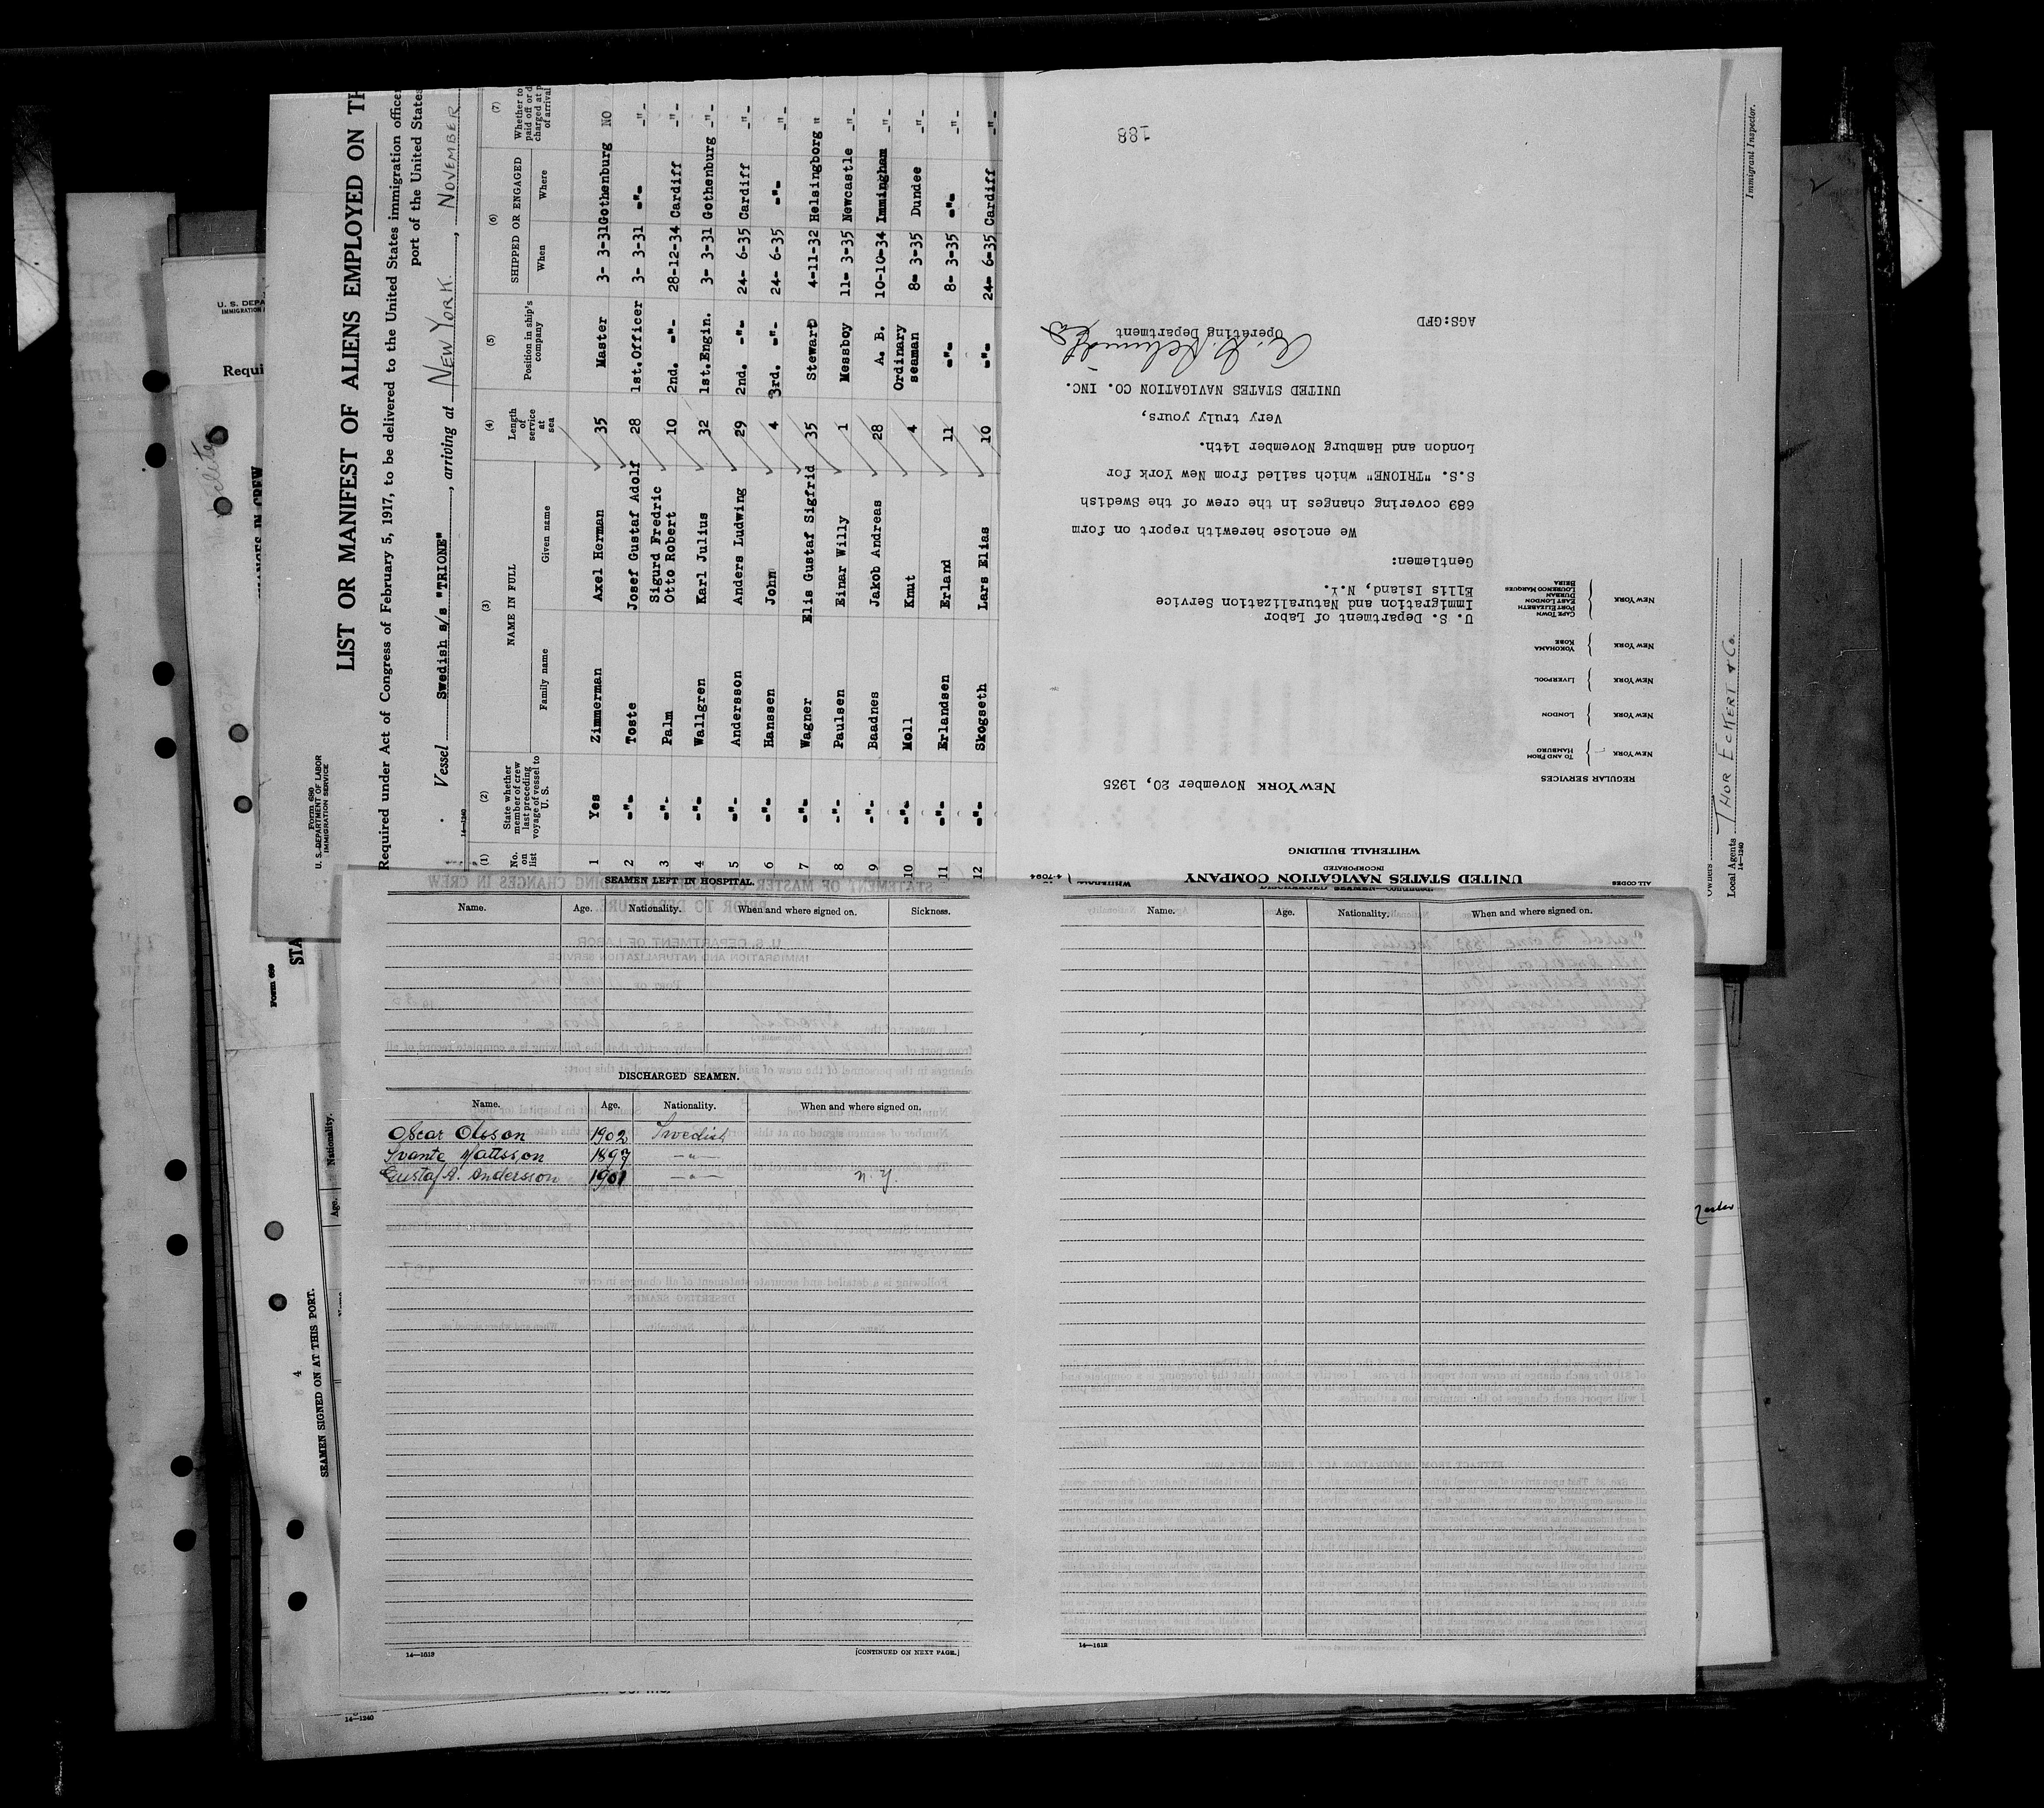 Form 680
U. S. DEPARTMENT OF LABOR
IMMIGRATION SERVICE
LIST OR MANIFEST OF ALIENS EMPLOYED ON TH
Required under Act of Congress of February 5, 1917, to be delivered to the United States immigration officer
port of the United States
Vessel Swedish s/s "TRIONE", arriving at NEW YORK, NOVEMBER
14-1240
(1) (2) (3) (4) (5) (6) (7)
No. on list
State whether member of crew last preceding voyage of vessel to U. S.
NAME IN FULL
Family name
Given name
Length of service at sea
Position in ship's company
SHIPPED OR ENGAGED
When
Where
Whether to
paid off or d
charged at p
of arrival
1 Yes Zimmerman Axel Herman 35 Master 3- 3-31 Gothenburg NO
2 -"- Toste Josef Gustaf Adolf 28 1st.Officer 3- 3-31 -"- -"-
3 -"- Palm Sigurd Fredric Otto Robert 10 2nd. -"- 28-12-34 Cardiff -"-
4 -"- Wallgren Karl Julius 32 1st.Engin. 3- 3-31 Gothenburg -"-
5 -"- Andersson Anders Ludwing 29 2nd. -"- 24- 6-35 Cardiff -"-
6 -"- Hanssen John 4 3rd. -"- 24- 6-35 -"- -"-
7 -"- Wagner Elis Gustaf Sigfrid 35 Stewart 4-11-32 Helsingborg "
8 -"- Paulsen Einar Willy 1 Messboy 11- 3-35 Newcastle -"-
9 -"- Baadnes Jakob Andreas 28 A. B. 10-10-34 Immingham -"-
10 -"- Moll Knut 4 Ordinary seaman 8- 3-35 Dundee -"-
11 -"- Erlandsen Erland 11 -"- 8- 3-35 -"- -"-
12 -"- Skogseth Lars Elias 10 -"- 24- 6-35 Cardiff -"-
ALL CODES
UNITED STATES NAVIGATION COMPANY
INCORPORATED
WHITEHALL BUILDING
REGULAR SERVICES
NEW YORK November 20, 1935
NEW YORK TO AND FROM HAMBURG
NEW YORK LONDON
NEW YORK LIVERPOOL
NEW YORK YOKOHAMA KOBE
NEW YORK CAPE TOWN PORT ELIZABETH EAST LONDON DURBAN LOURENCO MARQUES BEIRA
U. S. Department of Labor
Immigration and Naturalization Service
Ellis Island, N.Y.
Gentlemen:
We enclose herewith report on form
689 covering changes in the crew of the Swedish
S.S. "TRIONE" which sailed from New York for
London and Hamburg November 14th.
Very truly yours,
UNITED STATES NAVIGATION CO. INC.
Operating Department
AGS:GFD
188
Owners
Local Agents THOR ECKERT & Co.
14-1240
Immigrant Inspector.
U. S. DEPA
IMMIGRATION
Requi
Form 689
STA
SEAMEN SIGNED ON AT THIS PORT.
4
Nationality.
Age.
Name.
SEAMEN LEFT IN HOSPITAL.
Name. Age. Nationality. When and where signed on. Sickness.
DISCHARGED SEAMEN.
Name. Age. Nationality. When and where signed on.
Oscar Olsson 1902 Swedish
Svante Mattsson 1897 -"-
Gustaf A. Andersson 1901 -"- n. y.
14—1613
[CONTINUED ON NEXT PAGE.]
Name. Age. Nationality. When and where signed on.
14—1613
14—1240